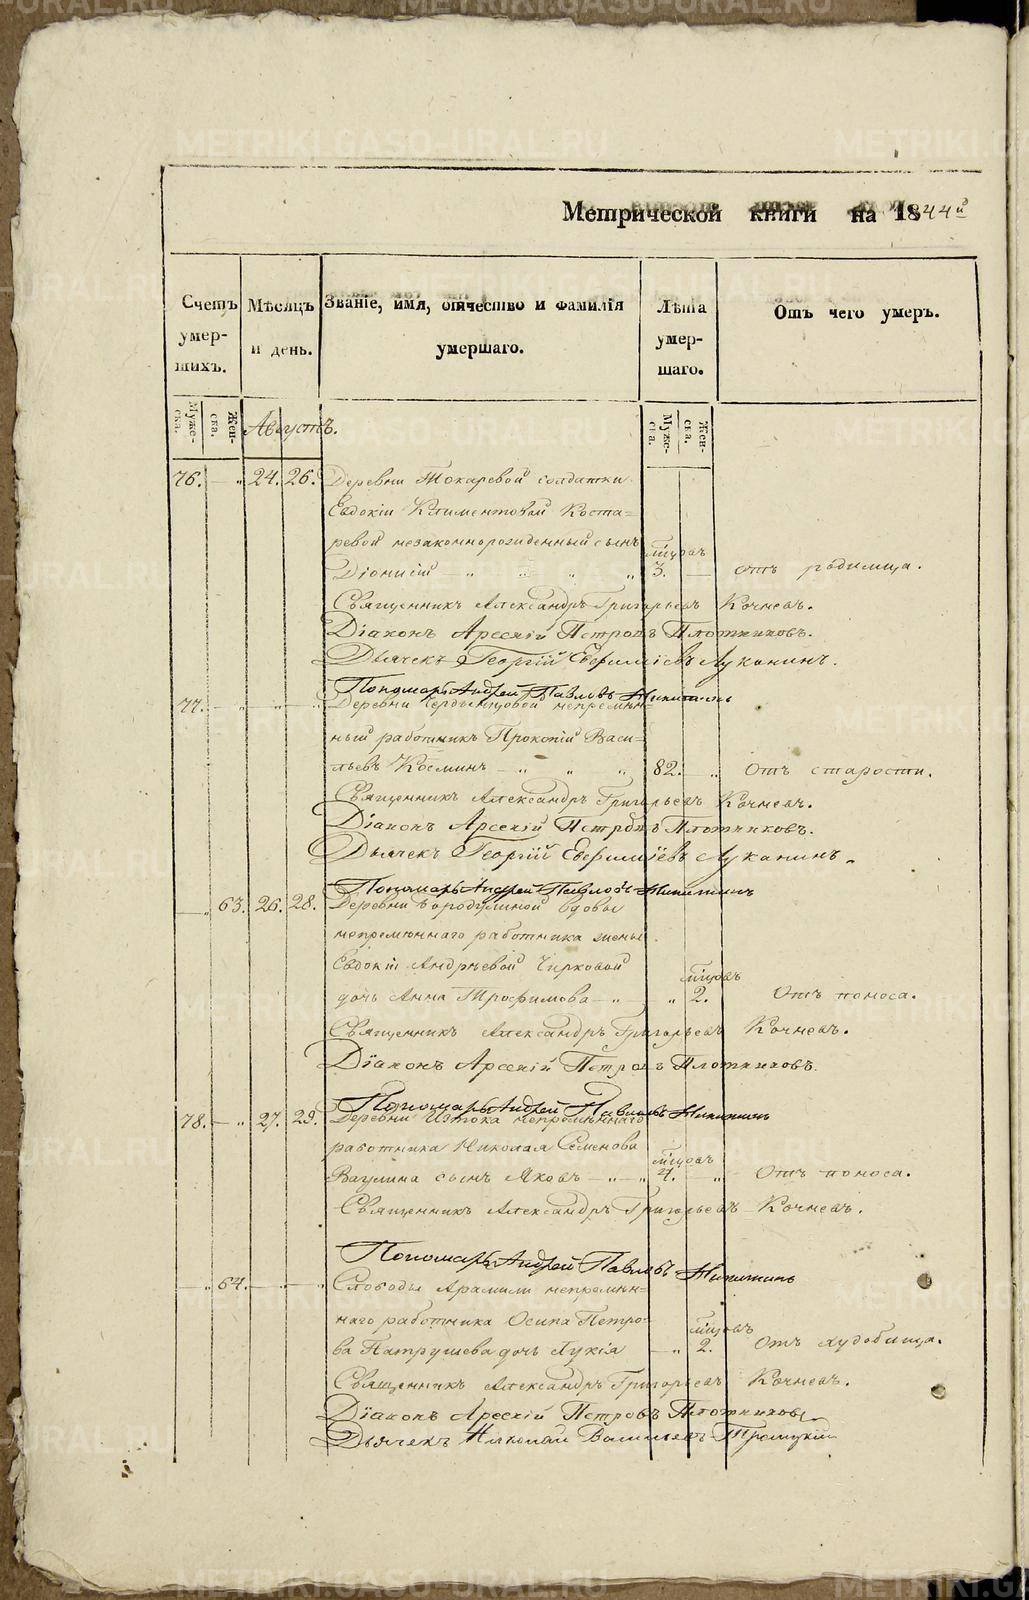 METRIKI.GASO-URAL.RU
Метрической книги на 1844й
Счетъ умер-шихъ.
Мѣсяцъ и день.
Званіе, имя, отчество и фамилія умершаго.
Лѣта умер-шаго.
Отъ чего умеръ.
Муже-ска.
Жен-ска.
Августъ.
Муже-ска.
Жен-ска.
76. — „ 24. 26. Деревни Токаревой солдатки
Евдокіи Климентовой Коста=
ревой незаконнорожденный сынъ
Діонисій — „ „ „ „ мѣсцовъ 3. — отъ родимца.
Священникъ Александръ Григорьевъ Кочневъ.
Діаконъ Арсеній Петровъ Плотниковъ.
Дьячекъ Георгій Евфиміевъ Луканинъ.
Пономарь Андрей Павловъ Никитинъ
77. — „ — „ — „ Деревни непремѣн=
ный работникъ Прокопій Васи=
льевъ Косминъ — „ „ „ 82. — „ Отъ старости.
Священникъ Александръ Григорьевъ Кочневъ.
Діаконъ Арсеній Петровъ Плотниковъ.
Дьячекъ Георгій Евфиміевъ Луканинъ.
Пономарь Андрей Павловъ Никитинъ
— „ 63. 26. 28. Деревни Бородулиной вдовы
непремѣннаго работника жены
Евдокіи Андрѣевой Чирковой
дочь Анна Трофимова — „ — „ мѣсцовъ 2. Отъ поноса.
Священникъ Александръ Григорьевъ Кочневъ.
Діаконъ Арсеній Петровъ Плотниковъ.
Пономарь Андрей Павловъ Никитинъ
78. — „ 27. 29. Деревни Истока непремѣннаго
работника Николая Семенова
Ваулина сынъ Яковъ — „ — „ мѣсцовъ 4. — „ Отъ поноса.
Священникъ Александръ Григорьевъ Кочневъ.
Пономарь Андрей Павловъ Никитинъ
— „ 64. — „ — „ Слободы Арамили непремѣн=
наго работника Осипа Петро=
ва Патрушева дочь Лукія — „ мѣсцовъ 2. Отъ худобища.
Священникъ Александръ Григорьевъ Кочневъ.
Діаконъ Арсеній Петровъ Плотниковъ
Дьячекъ Николай Васильевъ Троицкій